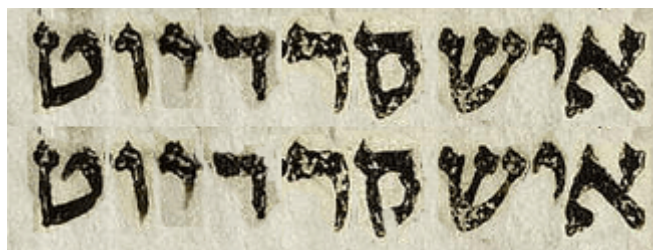 איש סרדיוט
איש קרדיוט